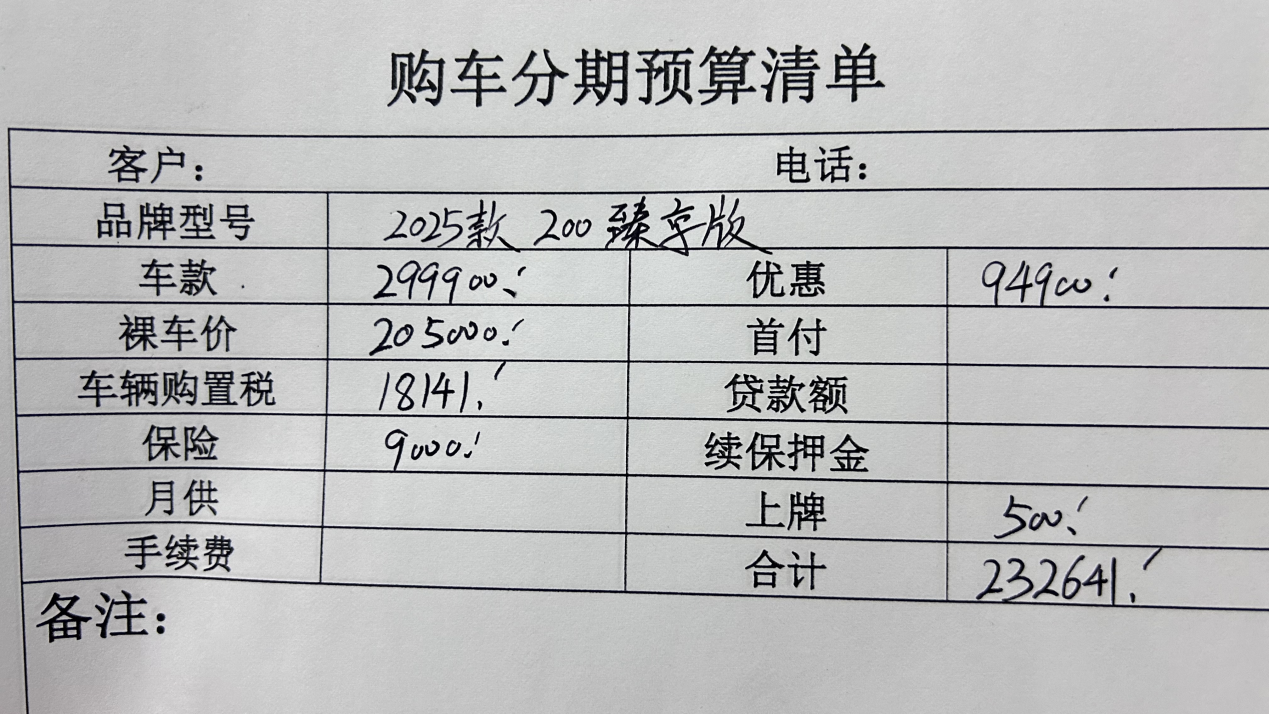 购车分期预算清单
客户： 电话：
品牌型号 2025款 200 臻享版
车款 299900.' 优惠 94900.'
裸车价 205000.' 首付
车辆购置税 18141.' 贷款额
保险 9000.' 续保押金
月供 上牌 500.'
手续费 合计 232641.'
备注：